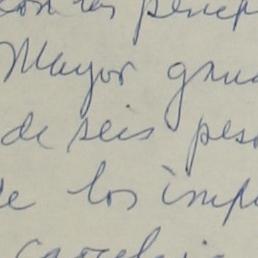 con las princip
Mayor gra
de seis peso
de los imp